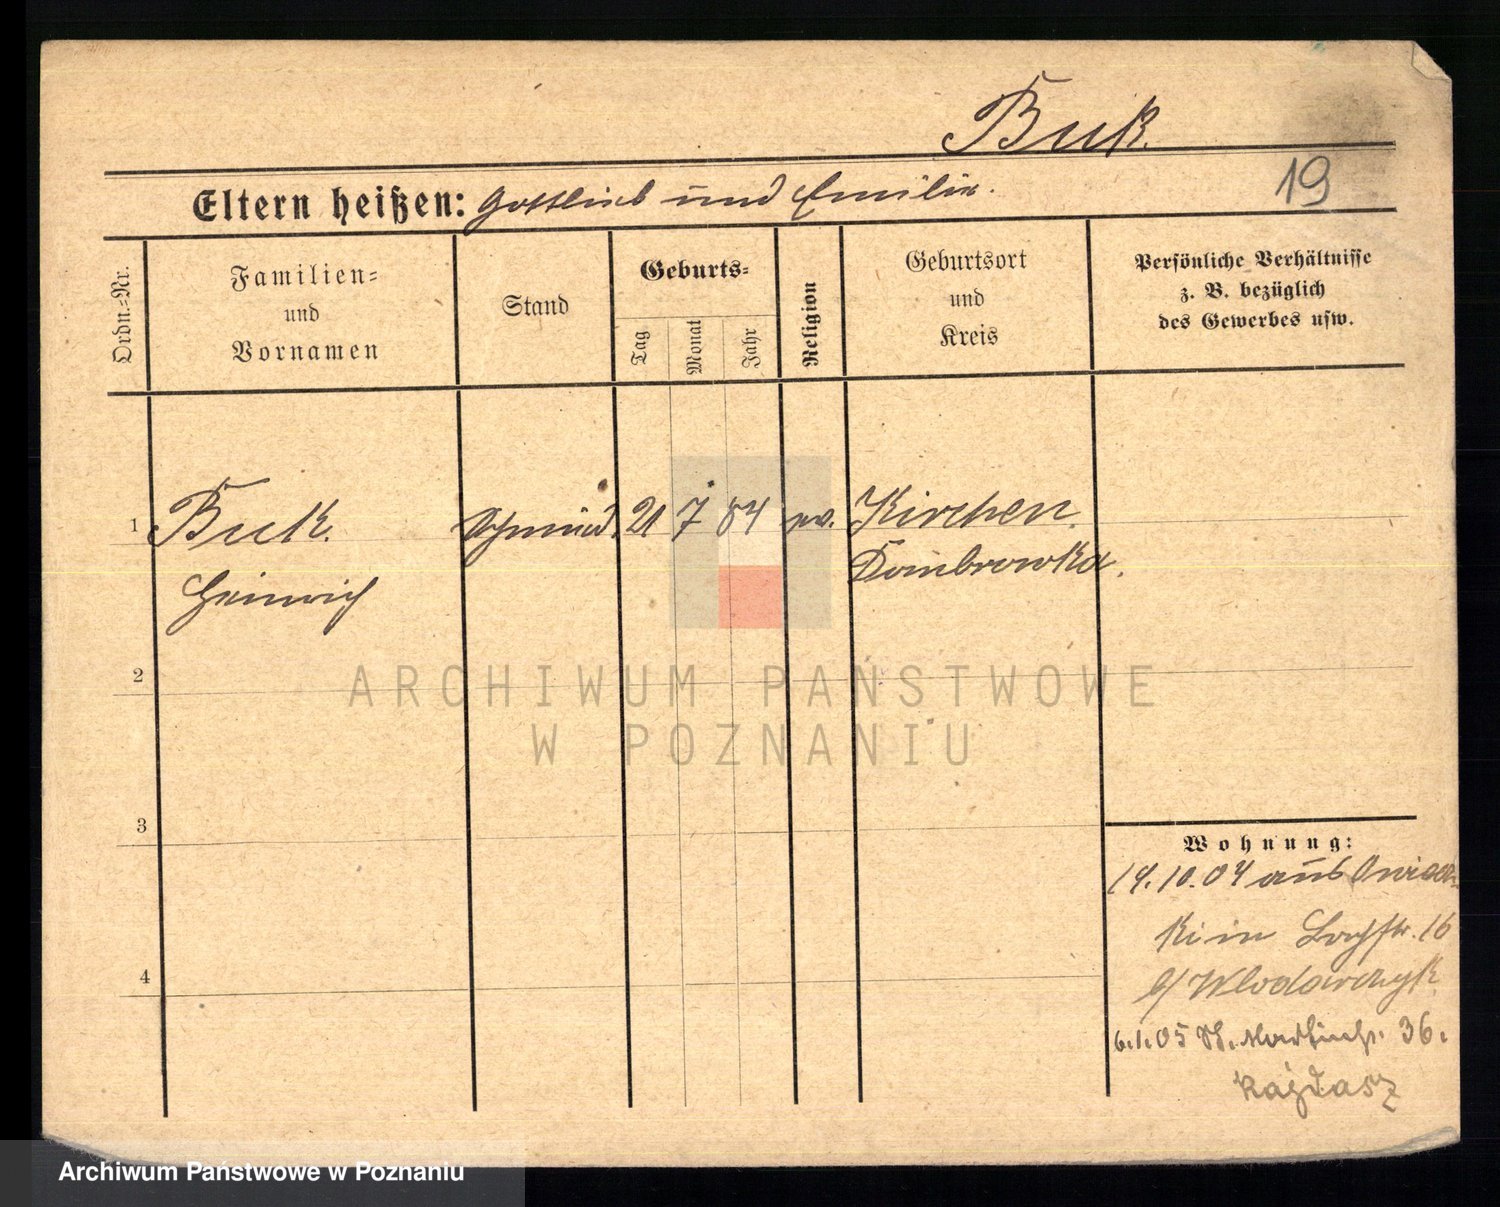 Buk.
Eltern heißen: Gottlieb und Emilie.
19
Ordn.-Nr.
Familien-
und
Vornamen
Stand
Geburts-
Tag
Monat
Jahr
Religion
Geburtsort
und
Kreis
Persönliche Verhältnisse
z. B. bezüglich
des Gewerbes usw.
1 Buk. Schmied. 21 7 84 ev. Kirchen.
Heinrich Dombrowka.
2
3
4
Wohnung:
14.10.04 aus Owins-
ki in
16
b/ Wlodarczyk
6.1.05 St. Martinstr. 36.
Kajdasz
ARCHIWUM PAŃSTWOWE
W POZNANIU
Archiwum Państwowe w Poznaniu